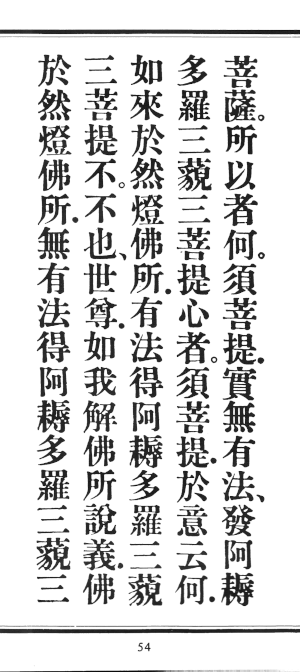 菩薩。所以者何。須菩提.實無有法、發阿耨
多羅三藐三菩提心者。須菩提.於意云何.
如來於然燈佛所.有法得阿耨多羅三藐
三菩提不。不也、世尊.如我解佛所說義.佛
於然燈佛所.無有法得阿耨多羅三藐三
54